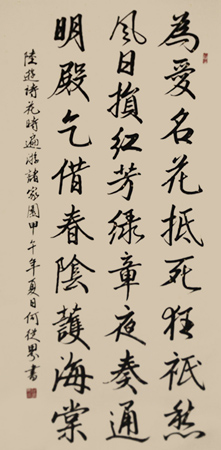 為愛名花抵死狂祇愁
風日損紅芳綠章夜奏通
明殿乞借春陰護海棠
陸游詩花時遍游諸家園甲午年夏日何從書